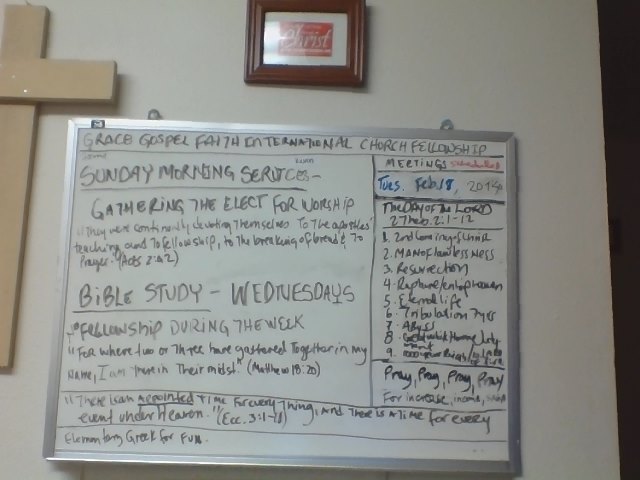 Christ
GRACE GOSPEL FAITH INTERNATIONAL CHURCH FELLOWSHIP
SUNDAY MORNING SERVICES-
GATHERING THE ELECT FOR WORSHIP
"They were continually devoting themselves To The apostles'
teaching and To fellowship, to the breaking of bread & To
Prayer." (Acts 2:42)
BIBLE STUDY - WEDNESDAYS
FELLOWSHIP DURING THE WEEK
"For where two or Three have gathered Together in my
Name, I am There in Their midst." (Matthew 18:20)
"There is an appointed Time for every Thing, And There is a Time for every
event under Heaven." (Ecc. 3:1-
Elementary Greek for Fun.
MEETINGS scheduled
Tues. Feb. 18, 2014
The DAY OF The LORD
2 Thes. 2:1-12
1. 2nd Coming of Christ
2. MAN of lawlessness
3. Resurrection
4. Rapture
5. Eternal life
6. Tribulation 7 yrs
7. Abyss
8.
9.
Pray, Pray, Pray, Pray
For increase, income,